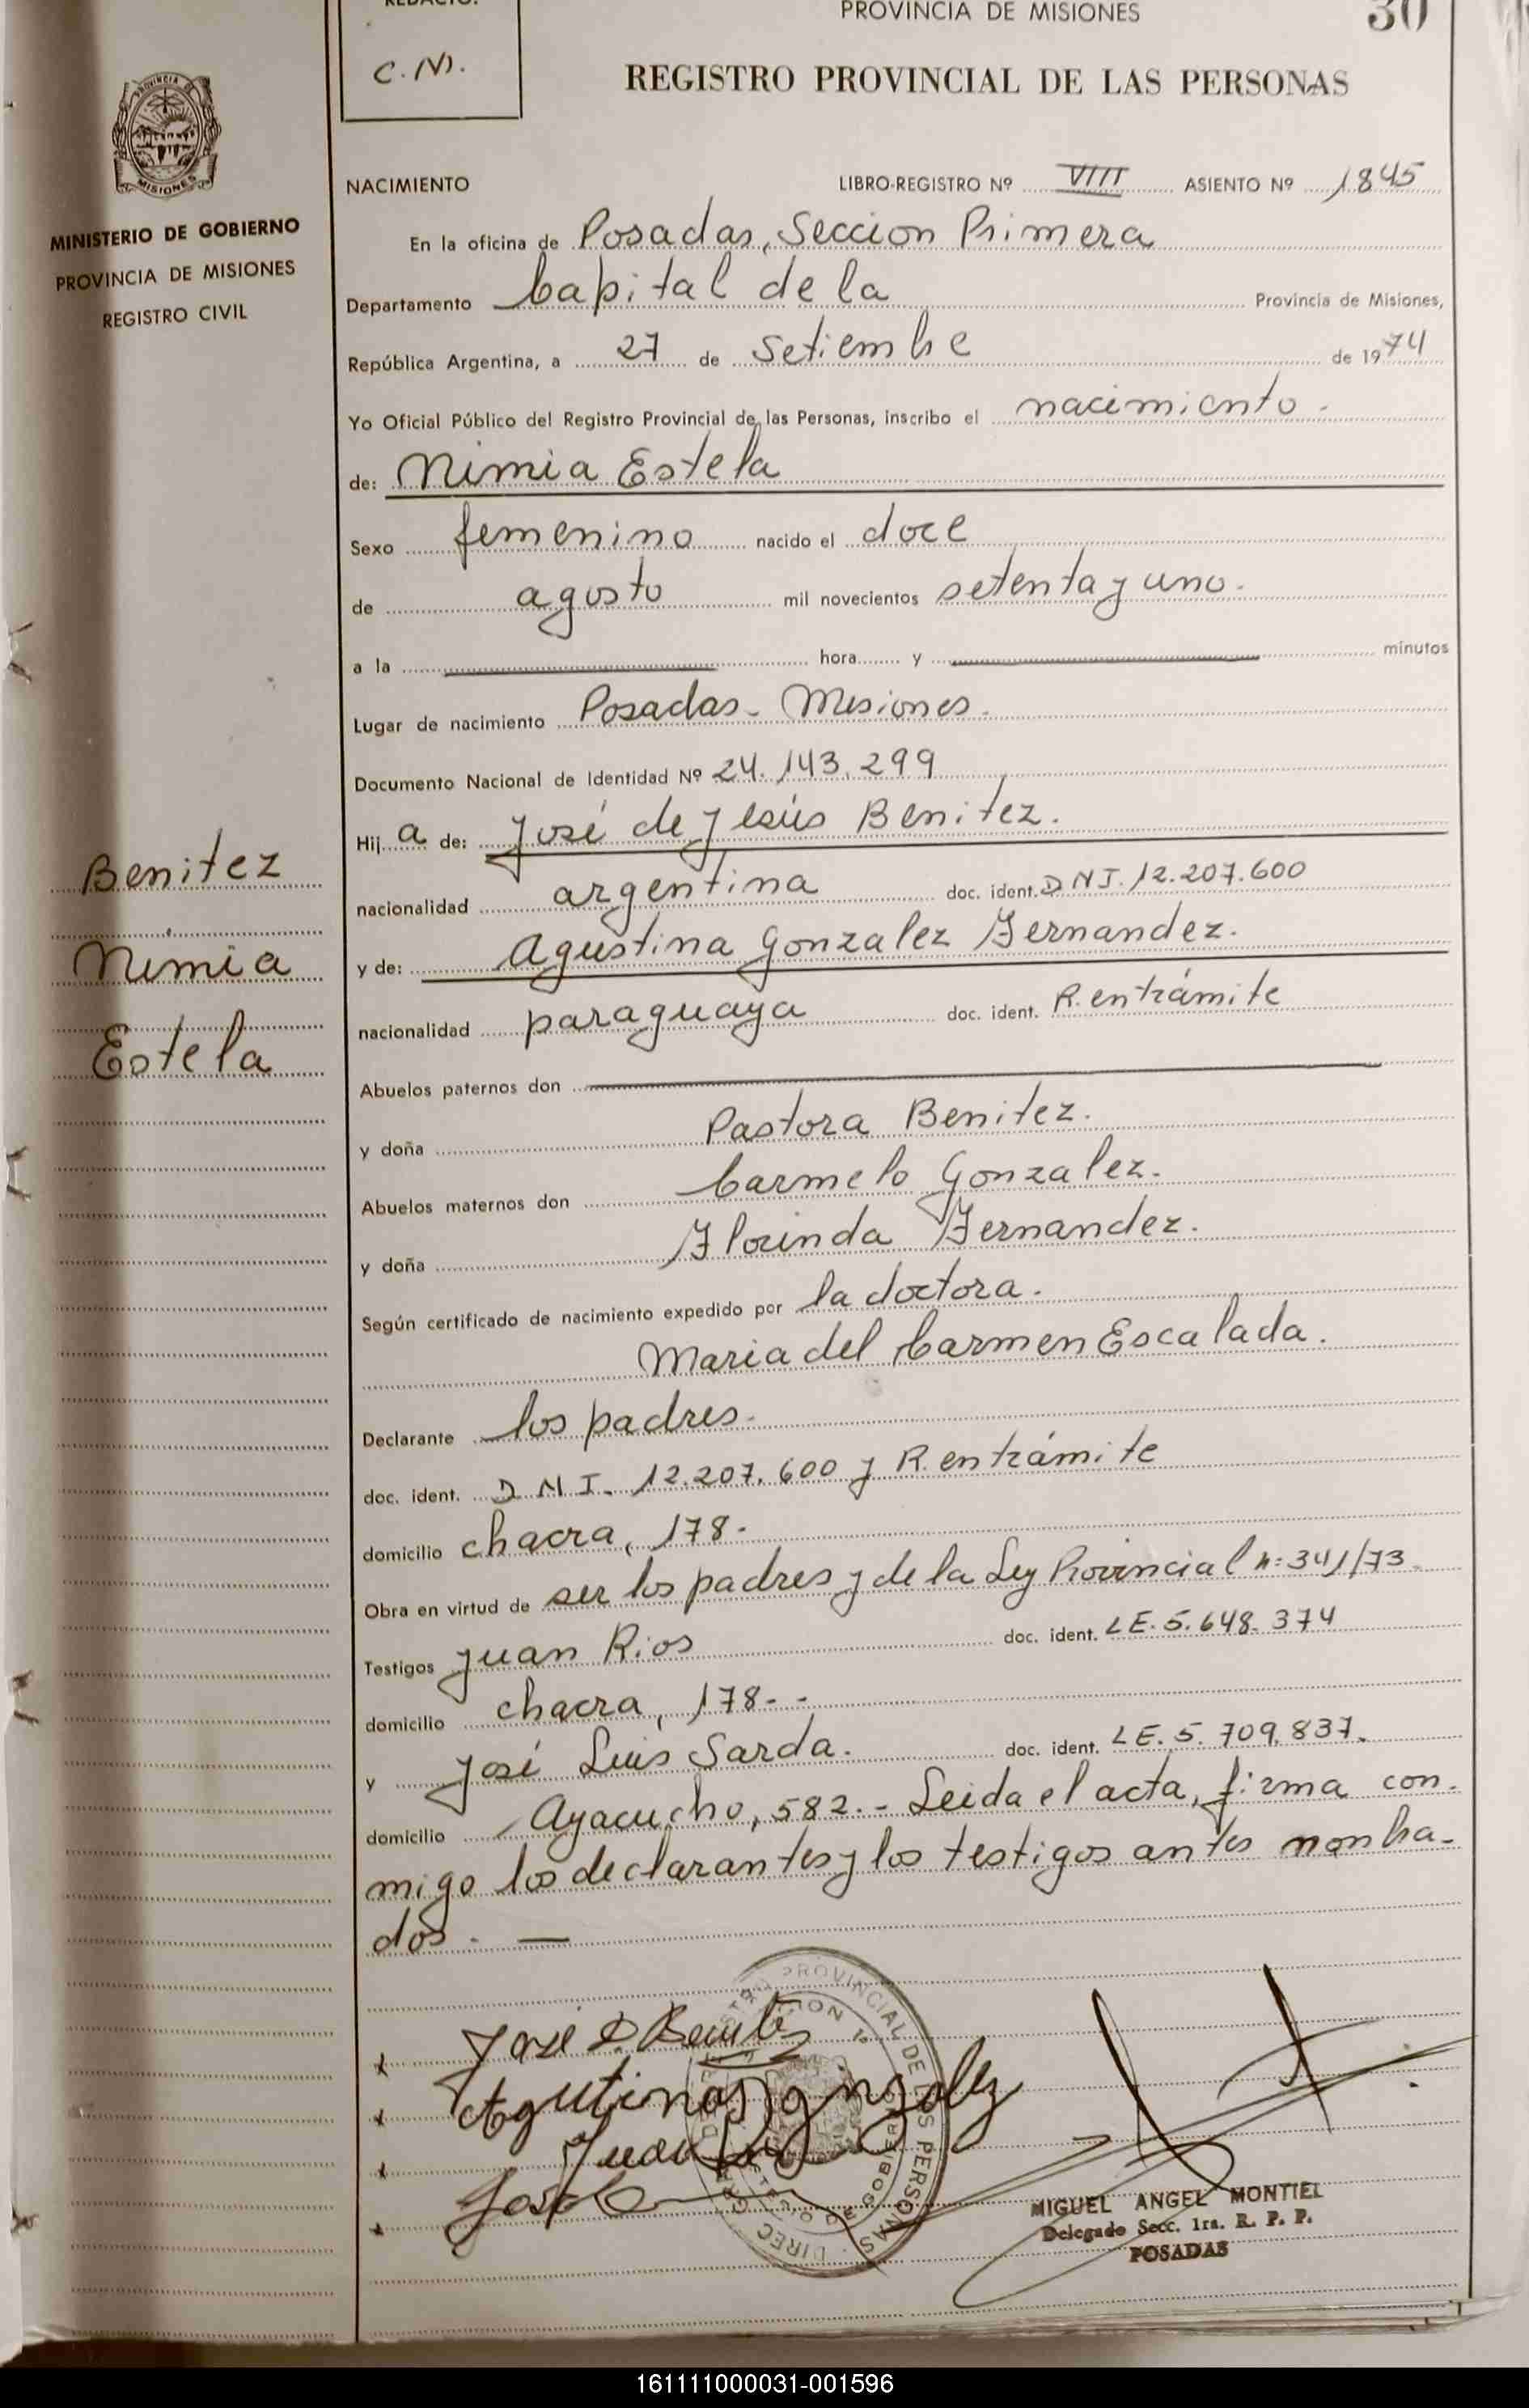 C. N.
PROVINCIA DE MISIONES
30
REGISTRO PROVINCIAL DE LAS PERSONAS
MISIONES
MINISTERIO DE GOBIERNO
PROVINCIA DE MISIONES
REGISTRO CIVIL
NACIMIENTO LIBRO-REGISTRO Nº VIII ASIENTO Nº 1845
En la oficina de Posadas, Seccion Primera
Departamento Capital de la Provincia de Misiones,
República Argentina, a 27 de Setiembre de 1974
Yo Oficial Público del Registro Provincial de las Personas, inscribo el nacimiento.
de: Nimia Estela
Sexo femenino nacido el doce
de agosto mil novecientos setenta y uno.
a la hora y minutos
Lugar de nacimiento Posadas - Misiones.
Documento Nacional de Identidad Nº 24.143.299
Hij a de: José de Jesús Benitez.
nacionalidad argentina doc. ident. DNI. 12.207.600
y de: Agustina Gonzalez Fernandez.
nacionalidad paraguaya doc. ident. R. entrámite
Benitez
Nimia
Estela
Abuelos paternos don
y doña Pastora Benitez.
Abuelos maternos don Carmelo Gonzalez.
y doña Florinda Fernandez.
Según certificado de nacimiento expedido por la doctora.
Maria del Carmen Escalada.
Declarante los padres.
doc. ident. DNI. 12.207.600 y R. entrámite
domicilio chacra, 178.
Obra en virtud de ser los padres y de la Ley Provincial n: 341/73.
Testigos Juan Rios doc. ident. LE. 5.648.374
domicilio chacra, 178.-
y José Luis Sarda. doc. ident. LE. 5.709.837.
domicilio Ayacucho, 582.- Leida el acta, firma con-
migo los declarantes y los testigos antes nonbra-
dos. —
José D. Benitez
Agutina Gonzalez
Juan
José
MIGUEL ANGEL MONTIEL
Delegado Secc. 1ra. R. P. P.
POSADAS
161111000031-001596